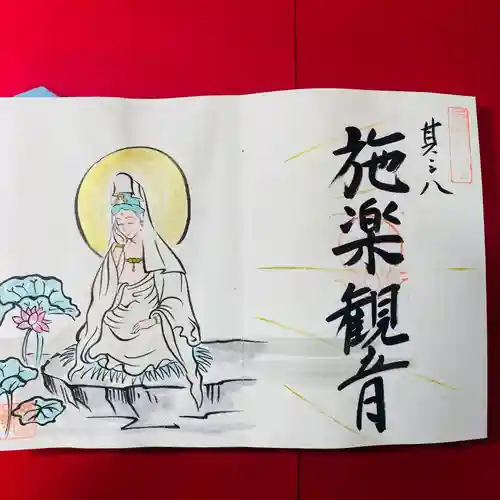 其二八
施楽観音